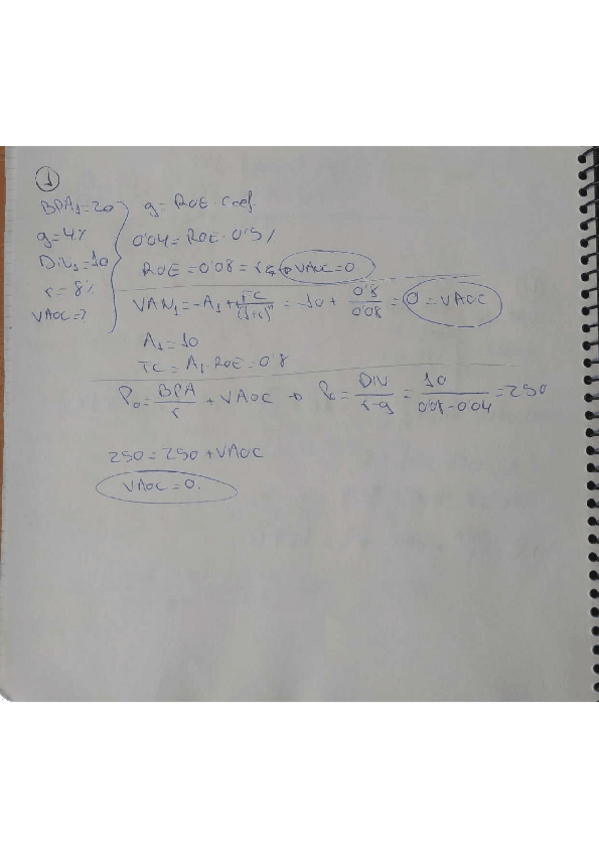 1
BPA₁=20
g=4%
DIV₁=10
r=8%
VAOC=?
g= ROE · Coef.
0'04= ROE · 0'5
ROE = 0'08 = r → VAOC=0
VAN₁= -A₁ + TC/(1+r)ⁿ = -10 + 0'8/0'08 = 0 = VAOC
A₁=10
TC = A₁·ROE = 0'8
P₀= BPA/r + VAOC → P₀= DIV/r-g = 10/0'08-0'04 = 250
250=250+VAOC
VAOC=0.